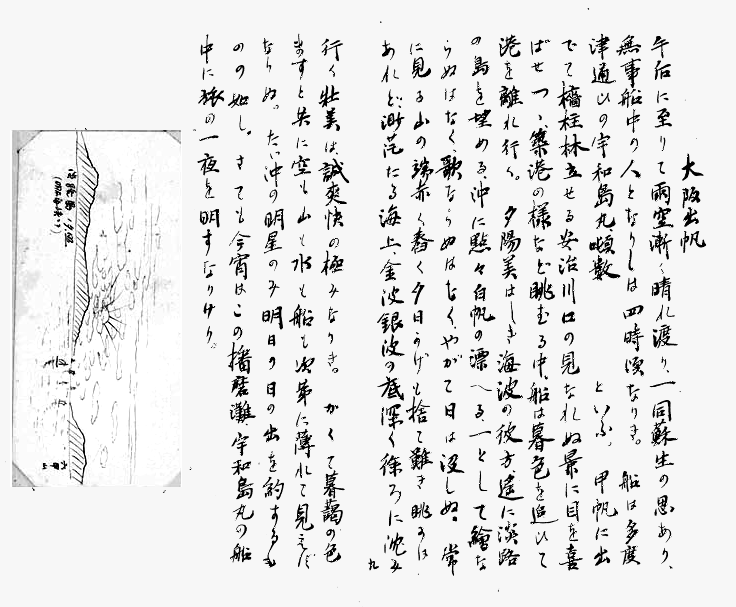 大阪出帆
午后に至りて雨空漸く晴れ渡り、一同蘇生の思あり、
無事船中の人となりしは四時頃なりき。船は多度
津通ひの宇和島丸噸数　　といふ。甲帆に出
でて檣柱林立せる安治川口の見なれぬ景に目を喜
ばせつゝ、築港の様など眺むる中、船は暮色を追ひて
港を離れ行く。夕陽美はしき海波の彼方、遙に淡路
の島を埋める、沖に點々白帆の漂へる、一として繪な
らぬはなく、歌ならぬはなく、やがて日は没しぬ。常
に見る山の端赤く舂く夕日かげも捨て難き眺めに
あれど、渺茫たる海上、金波銀波の底深く徐ろに沈み
九
行く壮美は、誠爽快の極みなりき。かくて暮藹の色
ますと共に空も山も水も船も次第に薄れて見えず
なりぬ。たゞ沖の明星のみ明日の日の出を約するも
のの如し。さても今宵はこの播磨灘、宇和島丸の船
中に旅の一夜を明すなりけり。
淡路島ノ夕照
六甲山